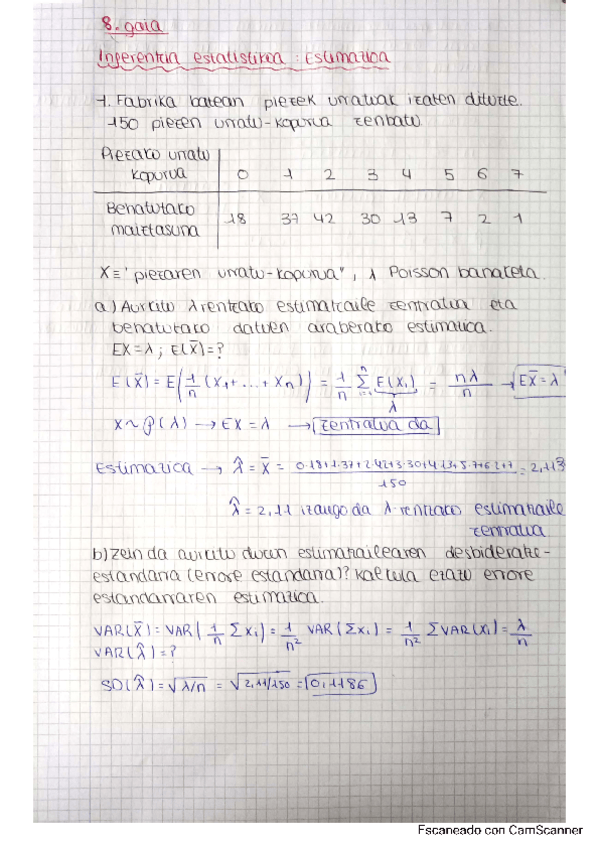 8. gaia
Inferentzia estatistikoa : Estimatzioa
1. Fabrika batean piezek urratuak izaten dituzte.
150 piezen urratu-kopurua zenbatu
Piezako urratu kopurua 0 1 2 3 4 5 6 7
Behatutako maiztasuna 18 37 42 30 13 7 2 1
X ≡ "piezaren urratu-kopurua", λ Poisson banaketa.
a) Aurkitu λ rentzako estimatzaile zentratua eta
behatutako datuen araberako estimazioa.
EX = λ ; E(X̄) = ?
E(X̄) = E(1/n (X₁ + ... + Xn)) = 1/n Σⁿᵢ₌₁ E(Xi) = nλ/n → EX̄ = λ
λ
X ~ P(λ) → EX = λ → zentratua da
Estimazioa → λ̂ = X̄ = 0·18+1·37+2·42+3·30+4·13+5·7+6·2+7 / 150 = 2,113
λ̂ = 2,11 izango da λ-rentzako estimatzaile
zentratua
b) Zein da aurkitu duzun estimatzailearen desbideratze-
estandarra (errore estandarra)? Kalkula ezazu errore
estandarraren estimazioa.
VAR(X̄) = VAR(1/n Σxi) = 1/n² VAR(Σxi) = 1/n² ΣVAR(xi) = λ/n
VAR(λ̂) = ?
SD(λ̂) = √λ/n = √2,11/150 = 0,1186
Escaneado con CamScanner